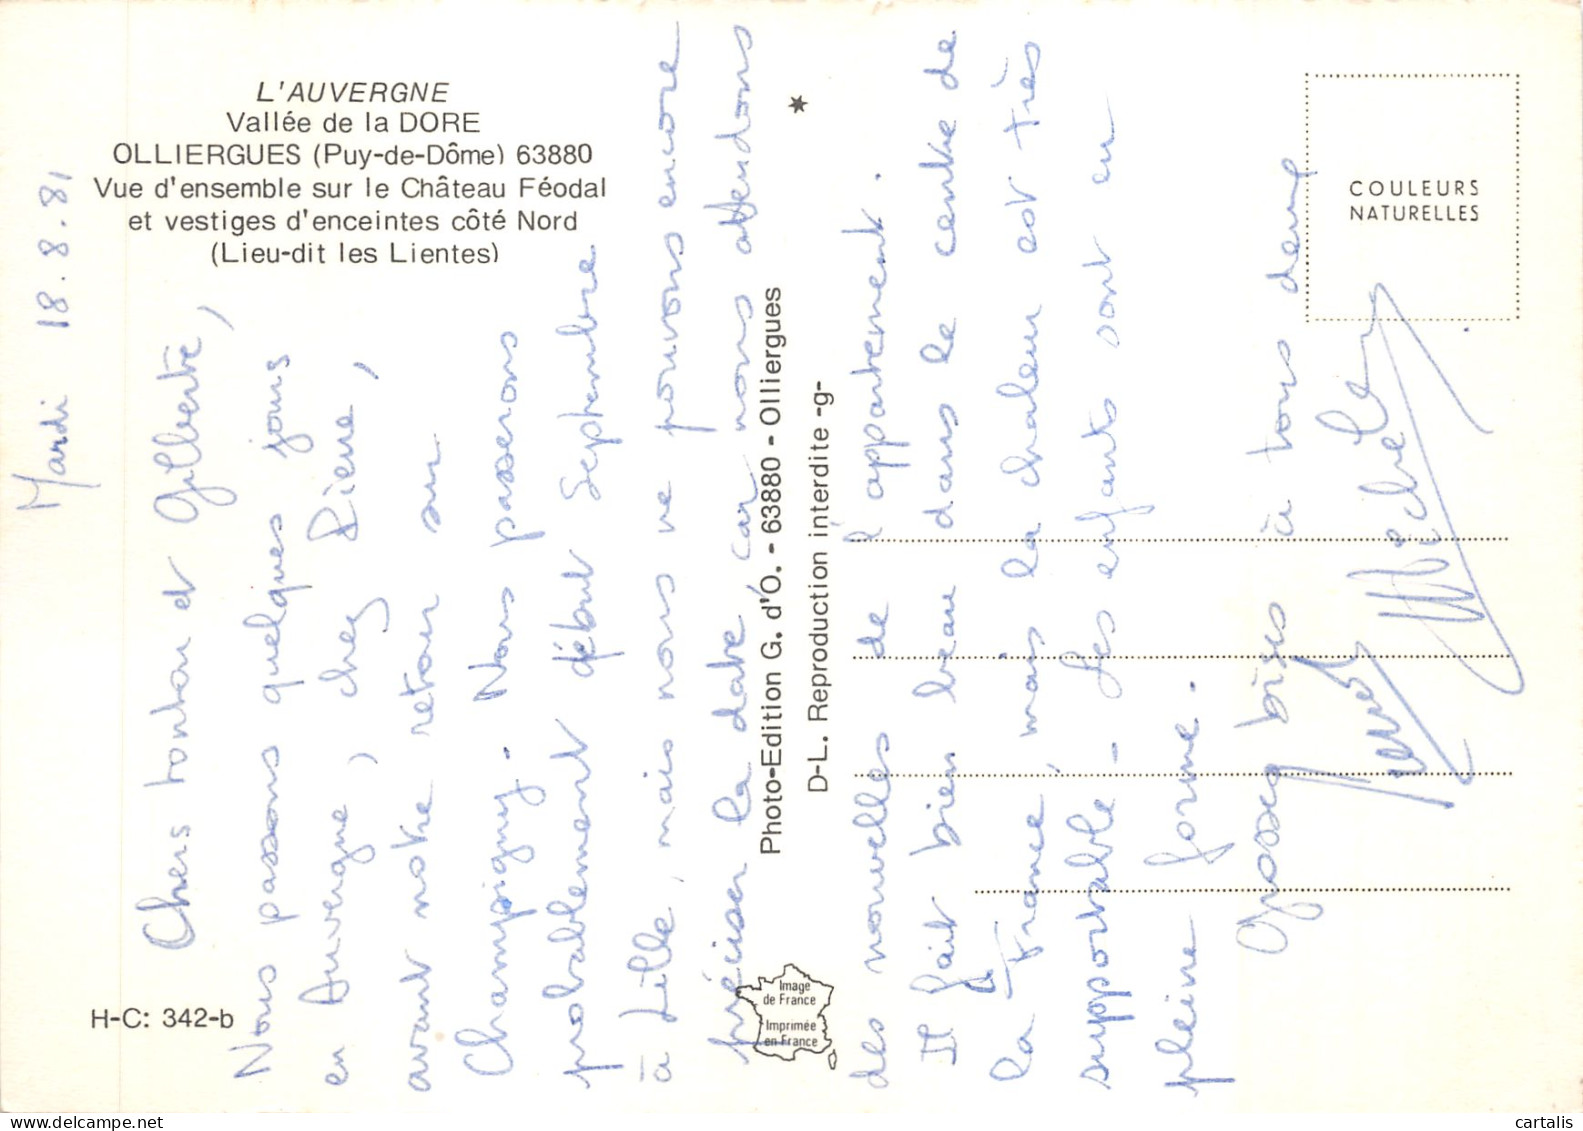 L'AUVERGNE
Vallée de la DORE
OLLIERGUES (Puy-de-Dôme) 63880
Vue d'ensemble sur le Château Féodal
et vestiges d'enceintes côté Nord
(Lieu-dit les Lientes)
H-C: 342-b
Photo-Edition G. d'O. - 63880 - Olliergues
D-L. Reproduction interdite -g-
Image
de France
Imprimée
en France
COULEURS
NATURELLES
Mardi 18.8.81
Chers tonton et Gilberte,
Nous passons quelques jours
en Auvergne, chez Pierre,
avant notre retour sur
Champigny. Nous passerons
probablement début Septembre
à Lille, mais nous ne pouvons encore
préciser la date, car nous attendons
des nouvelles de l'appartement.
Il fait bien beau dans le centre de
la France, mais la chaleur est très
supportable - Les enfants sont en
pleine forme.
Grosses bises à tous deux
Michèle
cartalis